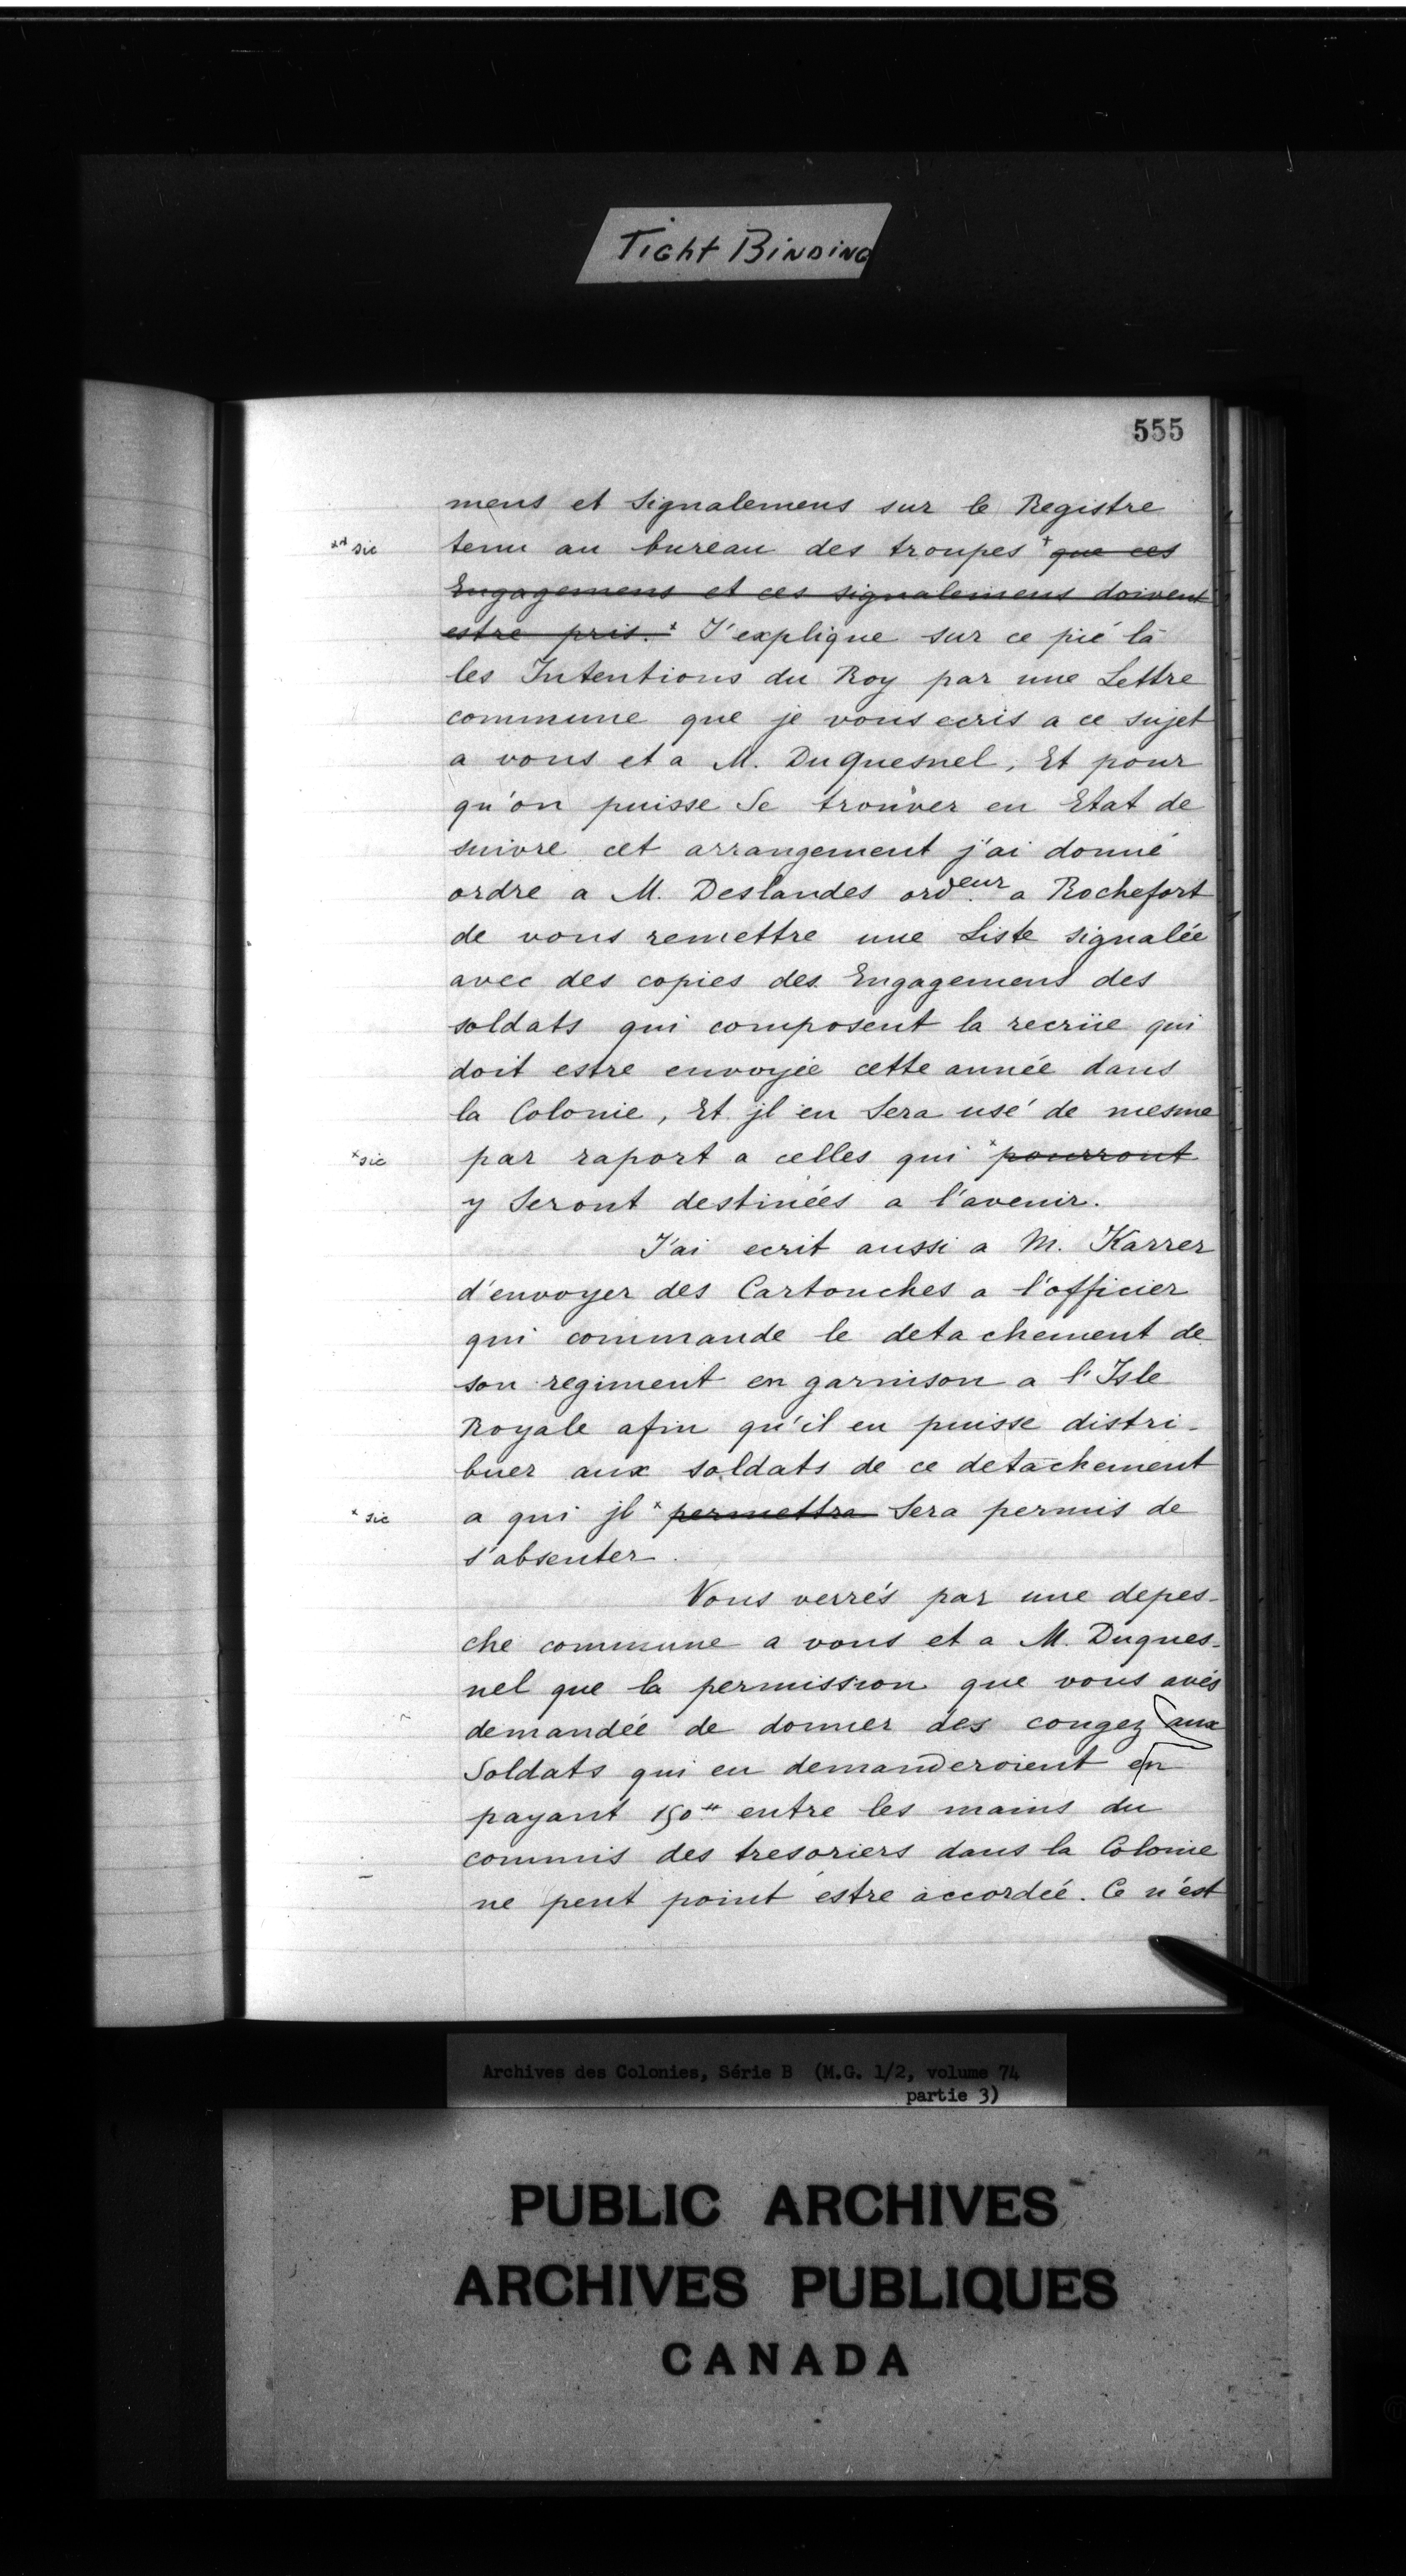 Tight Binding
555
mens et signalemens sur le Registre
xx sic tenu au bureau des troupes + que ces
Engagemens et ces signalemens doivent
estre pris. x J'explique sur ce pié là
les Intentions du Roy par une Lettre
commune que je vous ecris a ce sujet
a vous et a M. DuQuesnel, Et pour
qu'on puisse Se trouver en Etat de
suivre cet arrangement j'ai donné
ordre a M. Deslandes ord.eur a Rochefort
de vous remettre une Liste signalée
avec des copies des Engagemens des
soldats qui composent la recrüe qui
doit estre envoyée cette année dans
la Colonie, Et jl en Sera usé de mesme
x sic par raport a celles qui x pourront
y Seront destinées a l'avenir.
J'ai ecrit aussi a M. Karrer
d'envoyer des Cartouches a l'officier
qui commande le detachement de
son regiment en garnison a l'Isle
Royale afin qu'il en puisse distri-
buer aux soldats de ce detachement
x sic a qui jl x permettra Sera permis de
s'absenter.
Vous verrés par une depes-
che commune a vous et a M. Duques-
nel que la permission que vous avés
demandée de donner des congez aux
Soldats qui en demanderoient en
payant 150# entre les mains du
commis des tresoriers dans la Colonie
ne peut point estre accordée. Ce n'est
Archives des Colonies, Série B (M.G. 1/2, volume 74
partie 3)
PUBLIC ARCHIVES
ARCHIVES PUBLIQUES
CANADA